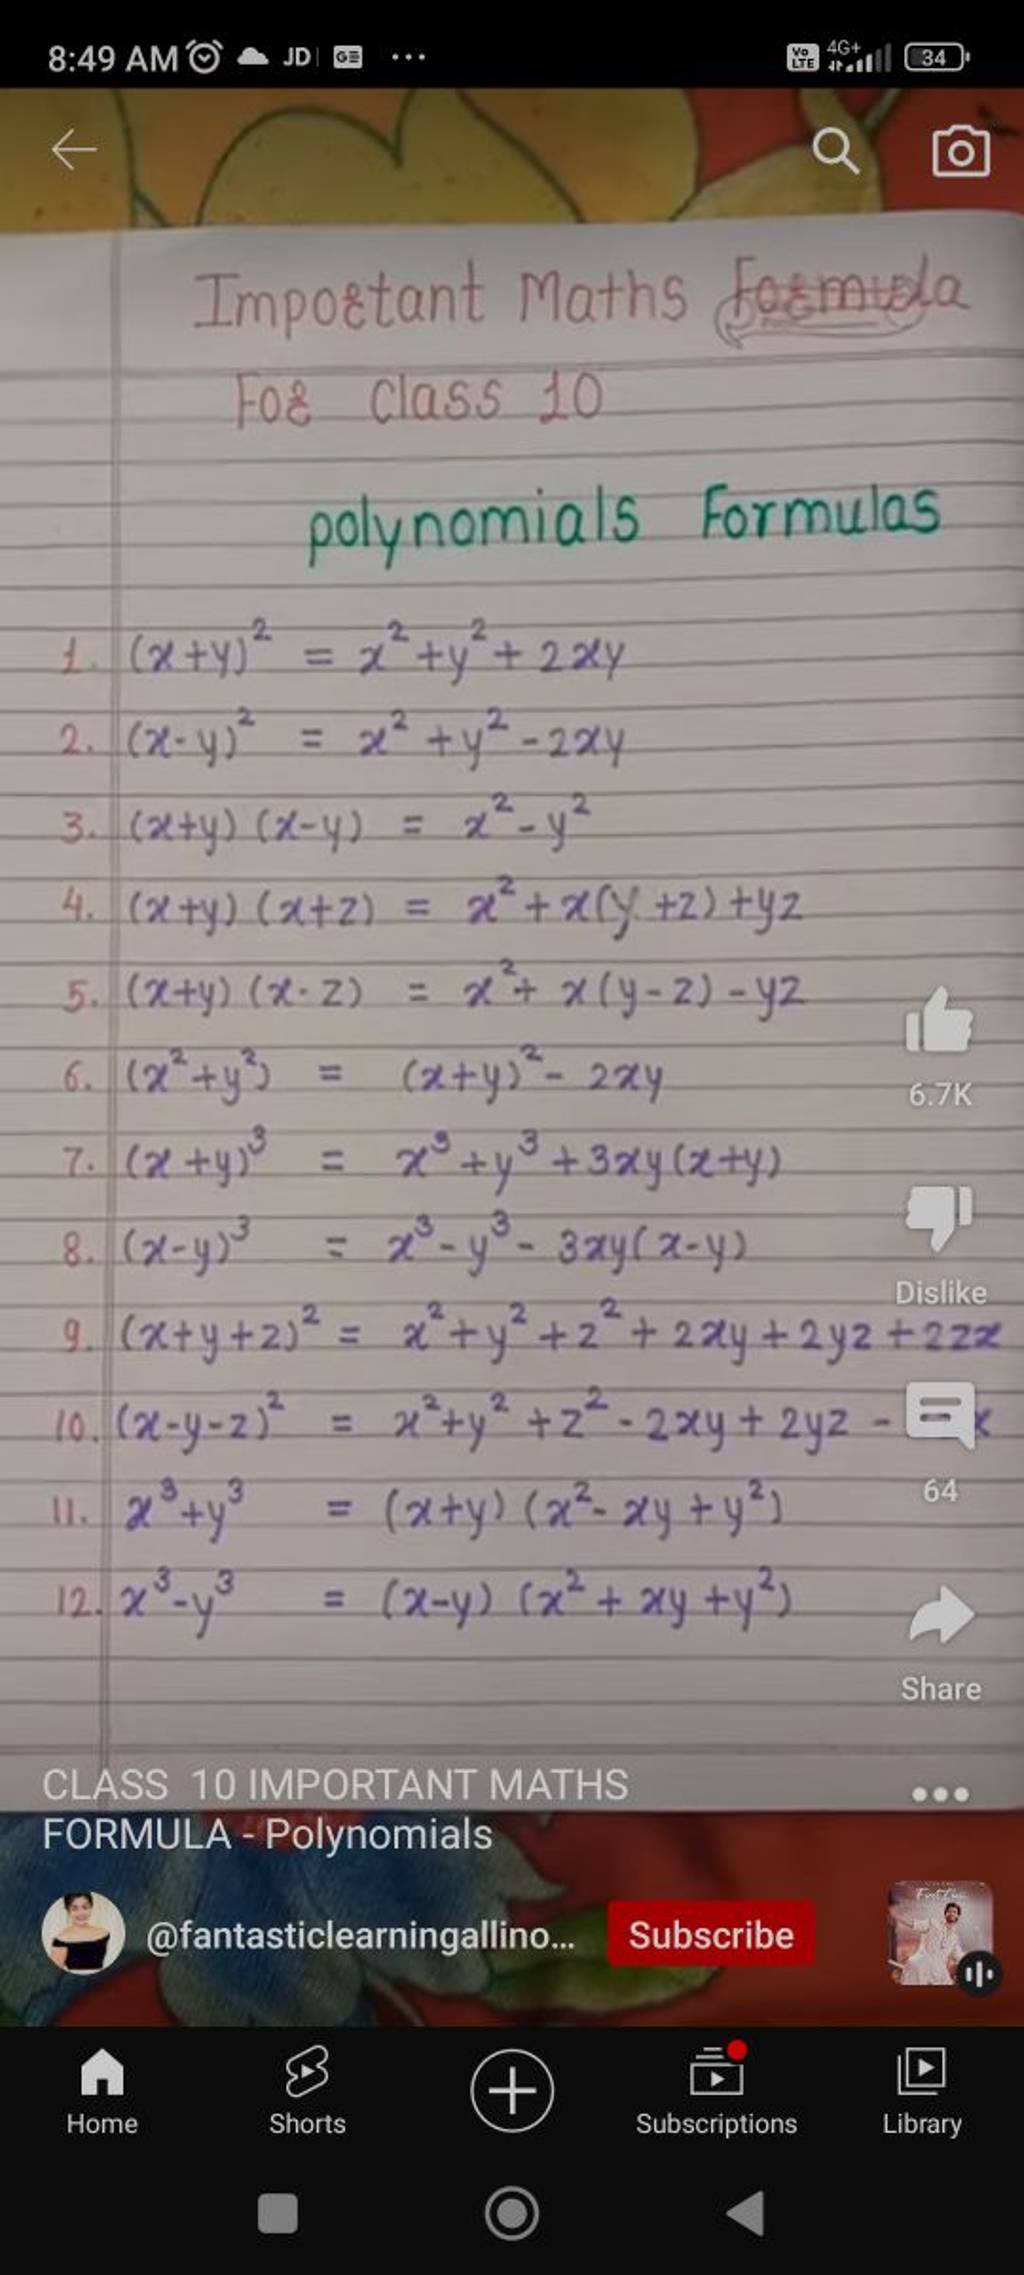 8:49 AM JD GE ...
Vo LTE 4G+ 34
Important Maths Formula
For Class 10
polynomials Formulas
1. (x+y)² = x²+y²+2xy
2. (x-y)² = x²+y²-2xy
3. (x+y) (x-y) = x²-y²
4. (x+y) (x+z) = x²+x(y+z)+yz
5. (x+y) (x-z) = x²+x(y-z)-yz
6. (x²+y²) = (x+y)²-2xy
7. (x+y)³ = x³+y³+3xy(x+y)
8. (x-y)³ = x³-y³-3xy(x-y)
9. (x+y+z)² = x²+y²+z²+2xy+2yz+2zx
10. (x-y-z)² = x²+y²+z²-2xy+2yz- x
11. x³+y³ = (x+y) (x²-xy+y²)
12. x³-y³ = (x-y) (x²+xy+y²)
6.7K
Dislike
64
Share
CLASS 10 IMPORTANT MATHS
FORMULA - Polynomials
@fantasticlearningallino... Subscribe
Home Shorts Subscriptions Library